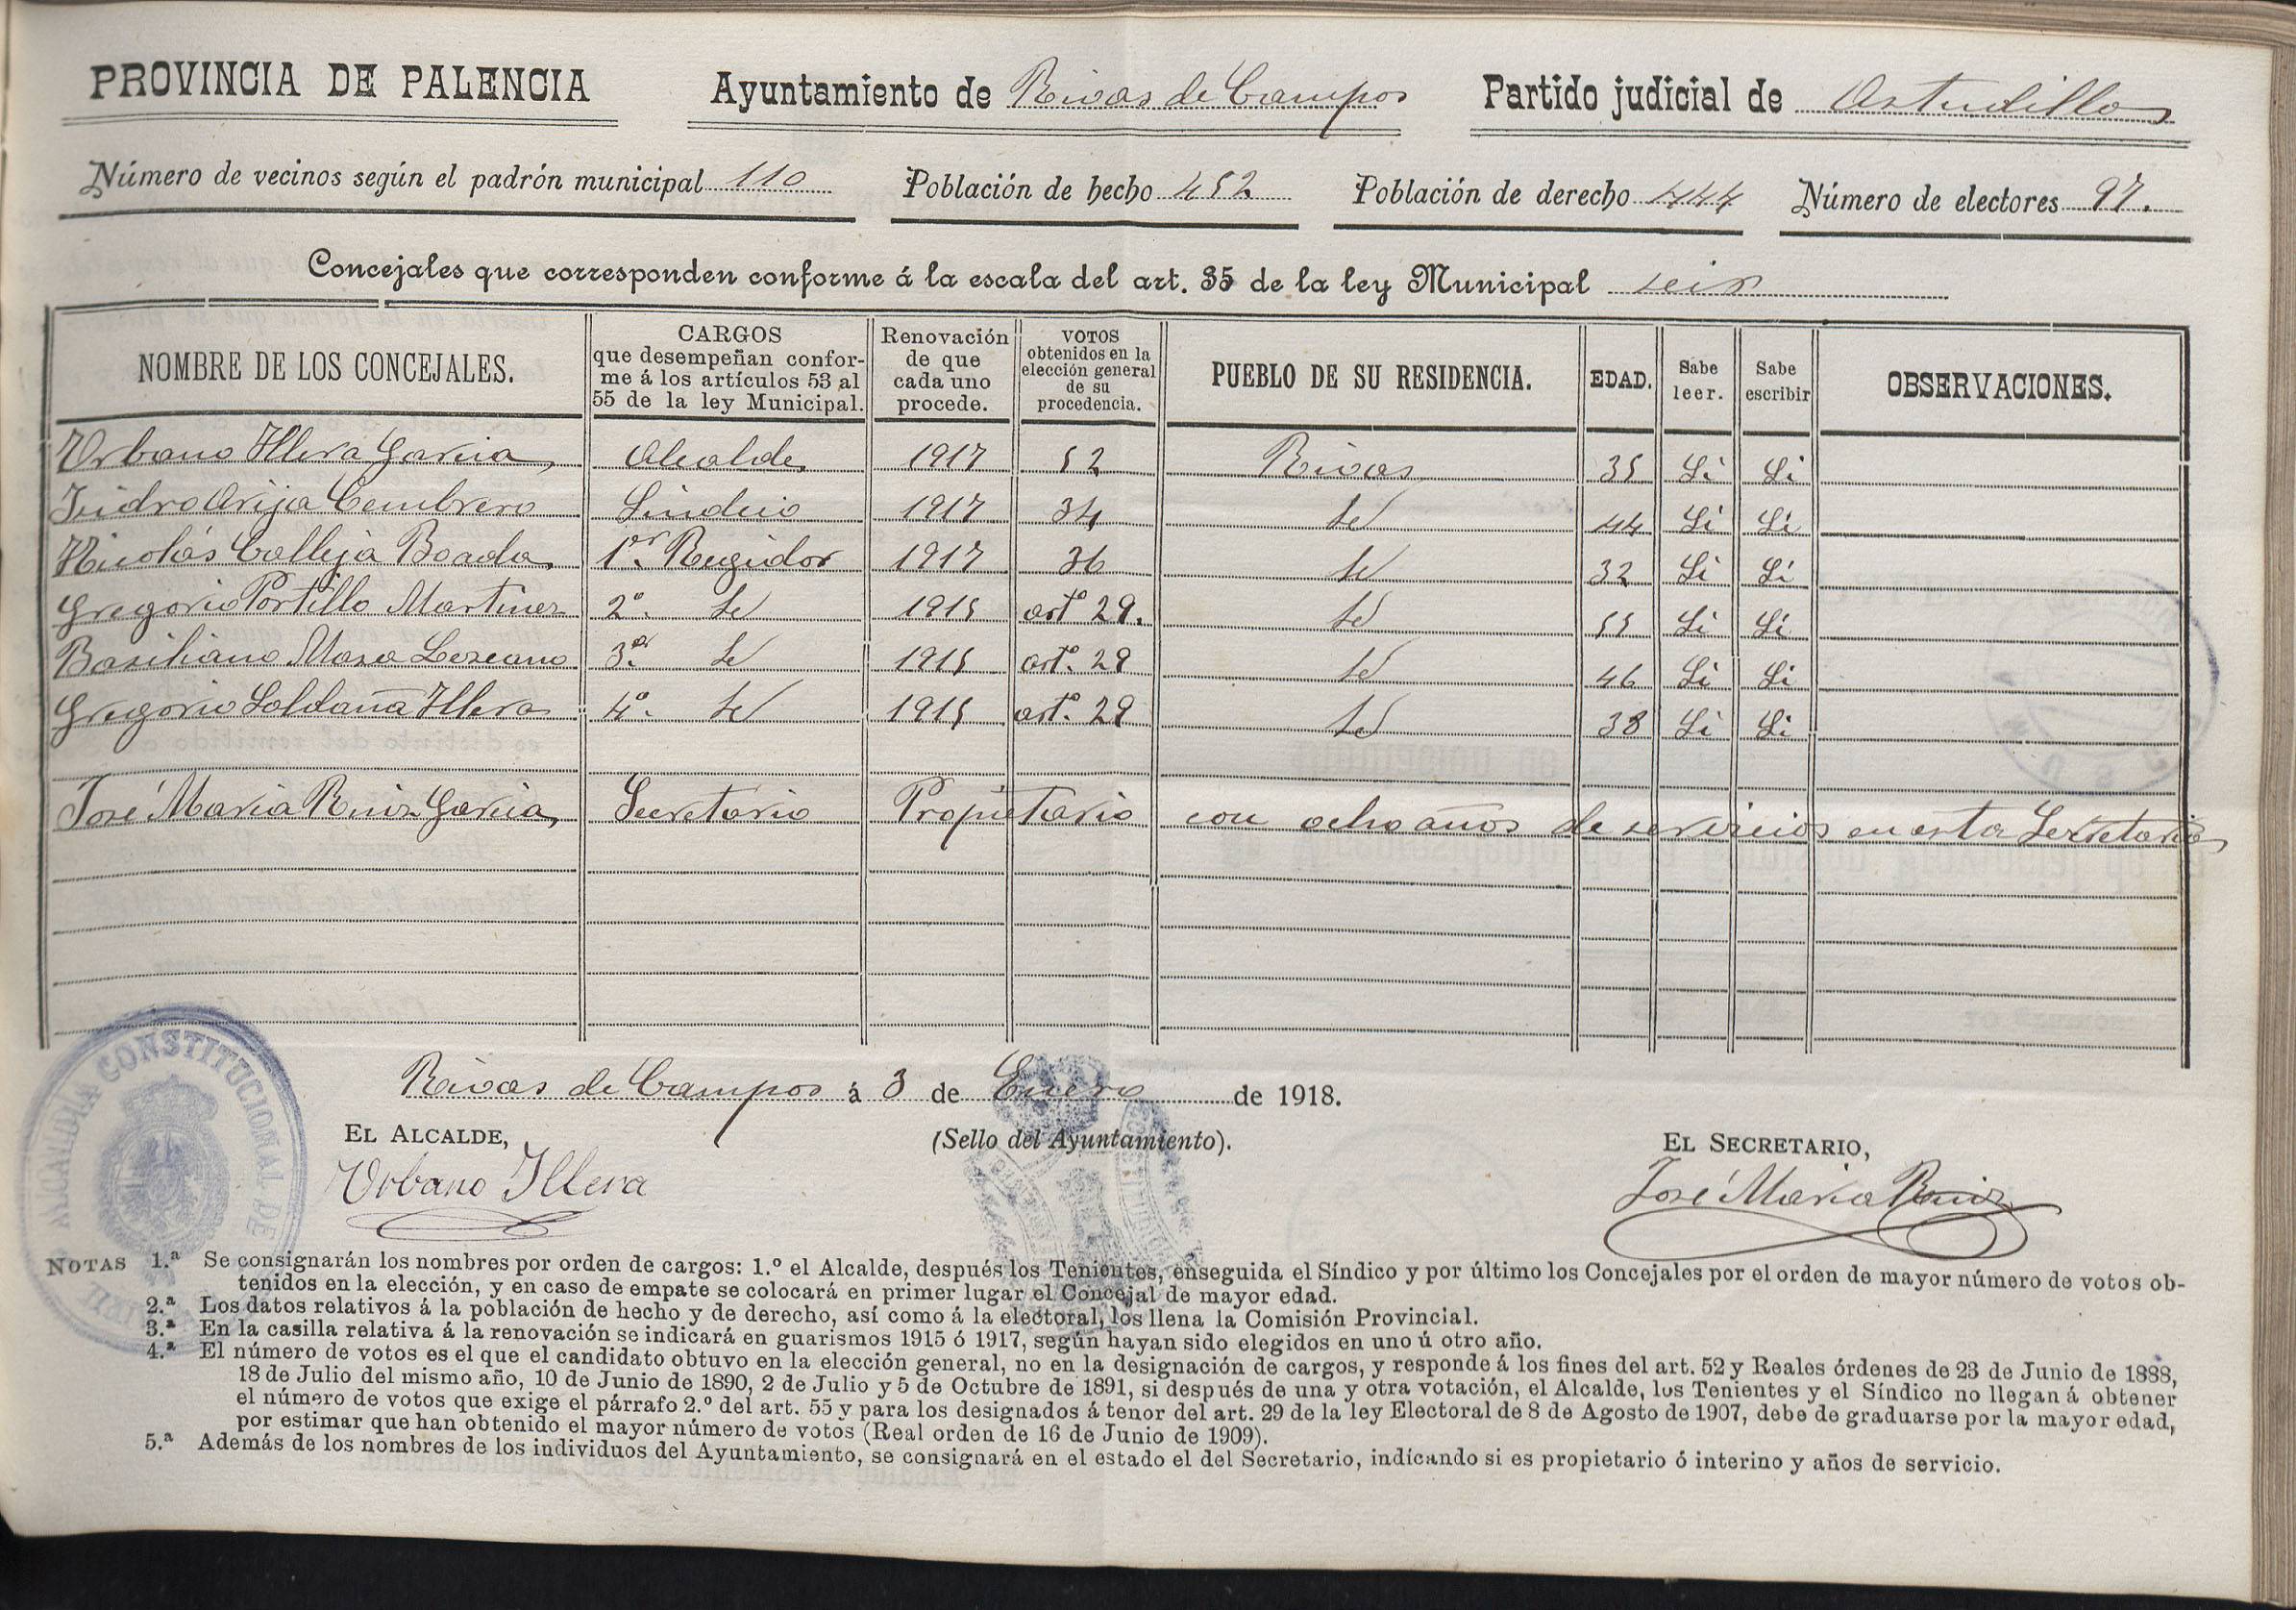 PROVINCIA DE PALENCIA Ayuntamiento de Rivas de Campos Partido judicial de Astudillo
Número de vecinos según el padrón municipal 110 Población de hecho 452 Población de derecho 444 Número de electores 97.
Concejales que corresponden conforme á la escala del art. 35 de la ley Municipal seis
NOMBRE DE LOS CONCEJALES. CARGOS que desempeñan conforme á los artículos 53 al 55 de la ley Municipal. Renovación de que cada uno procede. VOTOS obtenidos en la elección general de su procedencia. PUEBLO DE SU RESIDENCIA. EDAD. Sabe leer. Sabe escribir OBSERVACIONES.
Urbano Illera Garcia Alcalde 1917 52 Rivas 35 Si Si
Isidro Arija Cembrero Sindico 1917 34 id 44 Si Si
Nicolás Calleja Boada 1er. Regidor 1917 36 id 32 Si Si
Gregorio Portillo Martinez 2º. id 1915 artº 29. id 55 Si Si
Basiliano Masa Lezcano 3er. id 1915 artº. 29 id 46 Si Si
Gregorio Saldaña Illera 4º. id 1915 artº. 29 id 38 Si Si
José Maria Ruiz Garcia, Secretario Propietario con ocho años de servicios en esta Secretaria
Rivas de Campos á 3 de Enero de 1918.
EL ALCALDE, (Sello del Ayuntamiento). EL SECRETARIO,
Urbano Illera José Maria Ruiz
ALCALDIA CONSTITUCIONAL DE
NOTAS 1.ª Se consignarán los nombres por orden de cargos: 1.º el Alcalde, después los Tenientes, enseguida el Síndico y por último los Concejales por el orden de mayor número de votos ob-
tenidos en la elección, y en caso de empate se colocará en primer lugar el Concejal de mayor edad.
2.ª Los datos relativos á la población de hecho y de derecho, así como á la electoral, los llena la Comisión Provincial.
3.ª En la casilla relativa á la renovación se indicará en guarismos 1915 ó 1917, según hayan sido elegidos en uno ú otro año.
4.ª El número de votos es el que el candidato obtuvo en la elección general, no en la designación de cargos, y responde á los fines del art. 52 y Reales órdenes de 23 de Junio de 1888,
18 de Julio del mismo año, 10 de Junio de 1890, 2 de Julio y 5 de Octubre de 1891, si después de una y otra votación, el Alcalde, los Tenientes y el Síndico no llegan á obtener
el número de votos que exige el párrafo 2.º del art. 55 y para los designados á tenor del art. 29 de la ley Electoral de 8 de Agosto de 1907, debe de graduarse por la mayor edad,
por estimar que han obtenido el mayor número de votos (Real orden de 16 de Junio de 1909).
5.ª Además de los nombres de los individuos del Ayuntamiento, se consignará en el estado el del Secretario, indicando si es propietario ó interino y años de servicio.